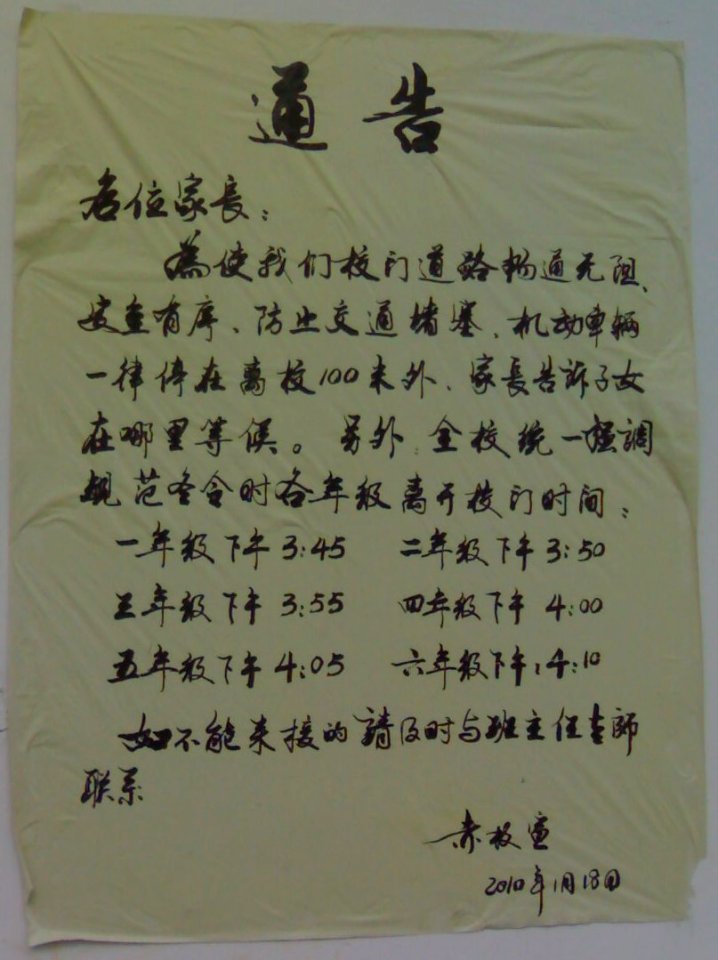 通告
各位家长：
為使我们校门道路畅通无阻、
安全有序、防止交通堵塞、机动車辆
一律停在离校100米外、家长告訴子女
在哪里等候。另外：全校统一强調
规范冬令时各年级离开校门时间：
一年级下午3:45 二年级下午3:50
三年级下午3:55 四年级下午4:00
五年级下午4:05 六年级下午:4:10
如不能来接的請及时与班主任老師
联系
2010年1月18日